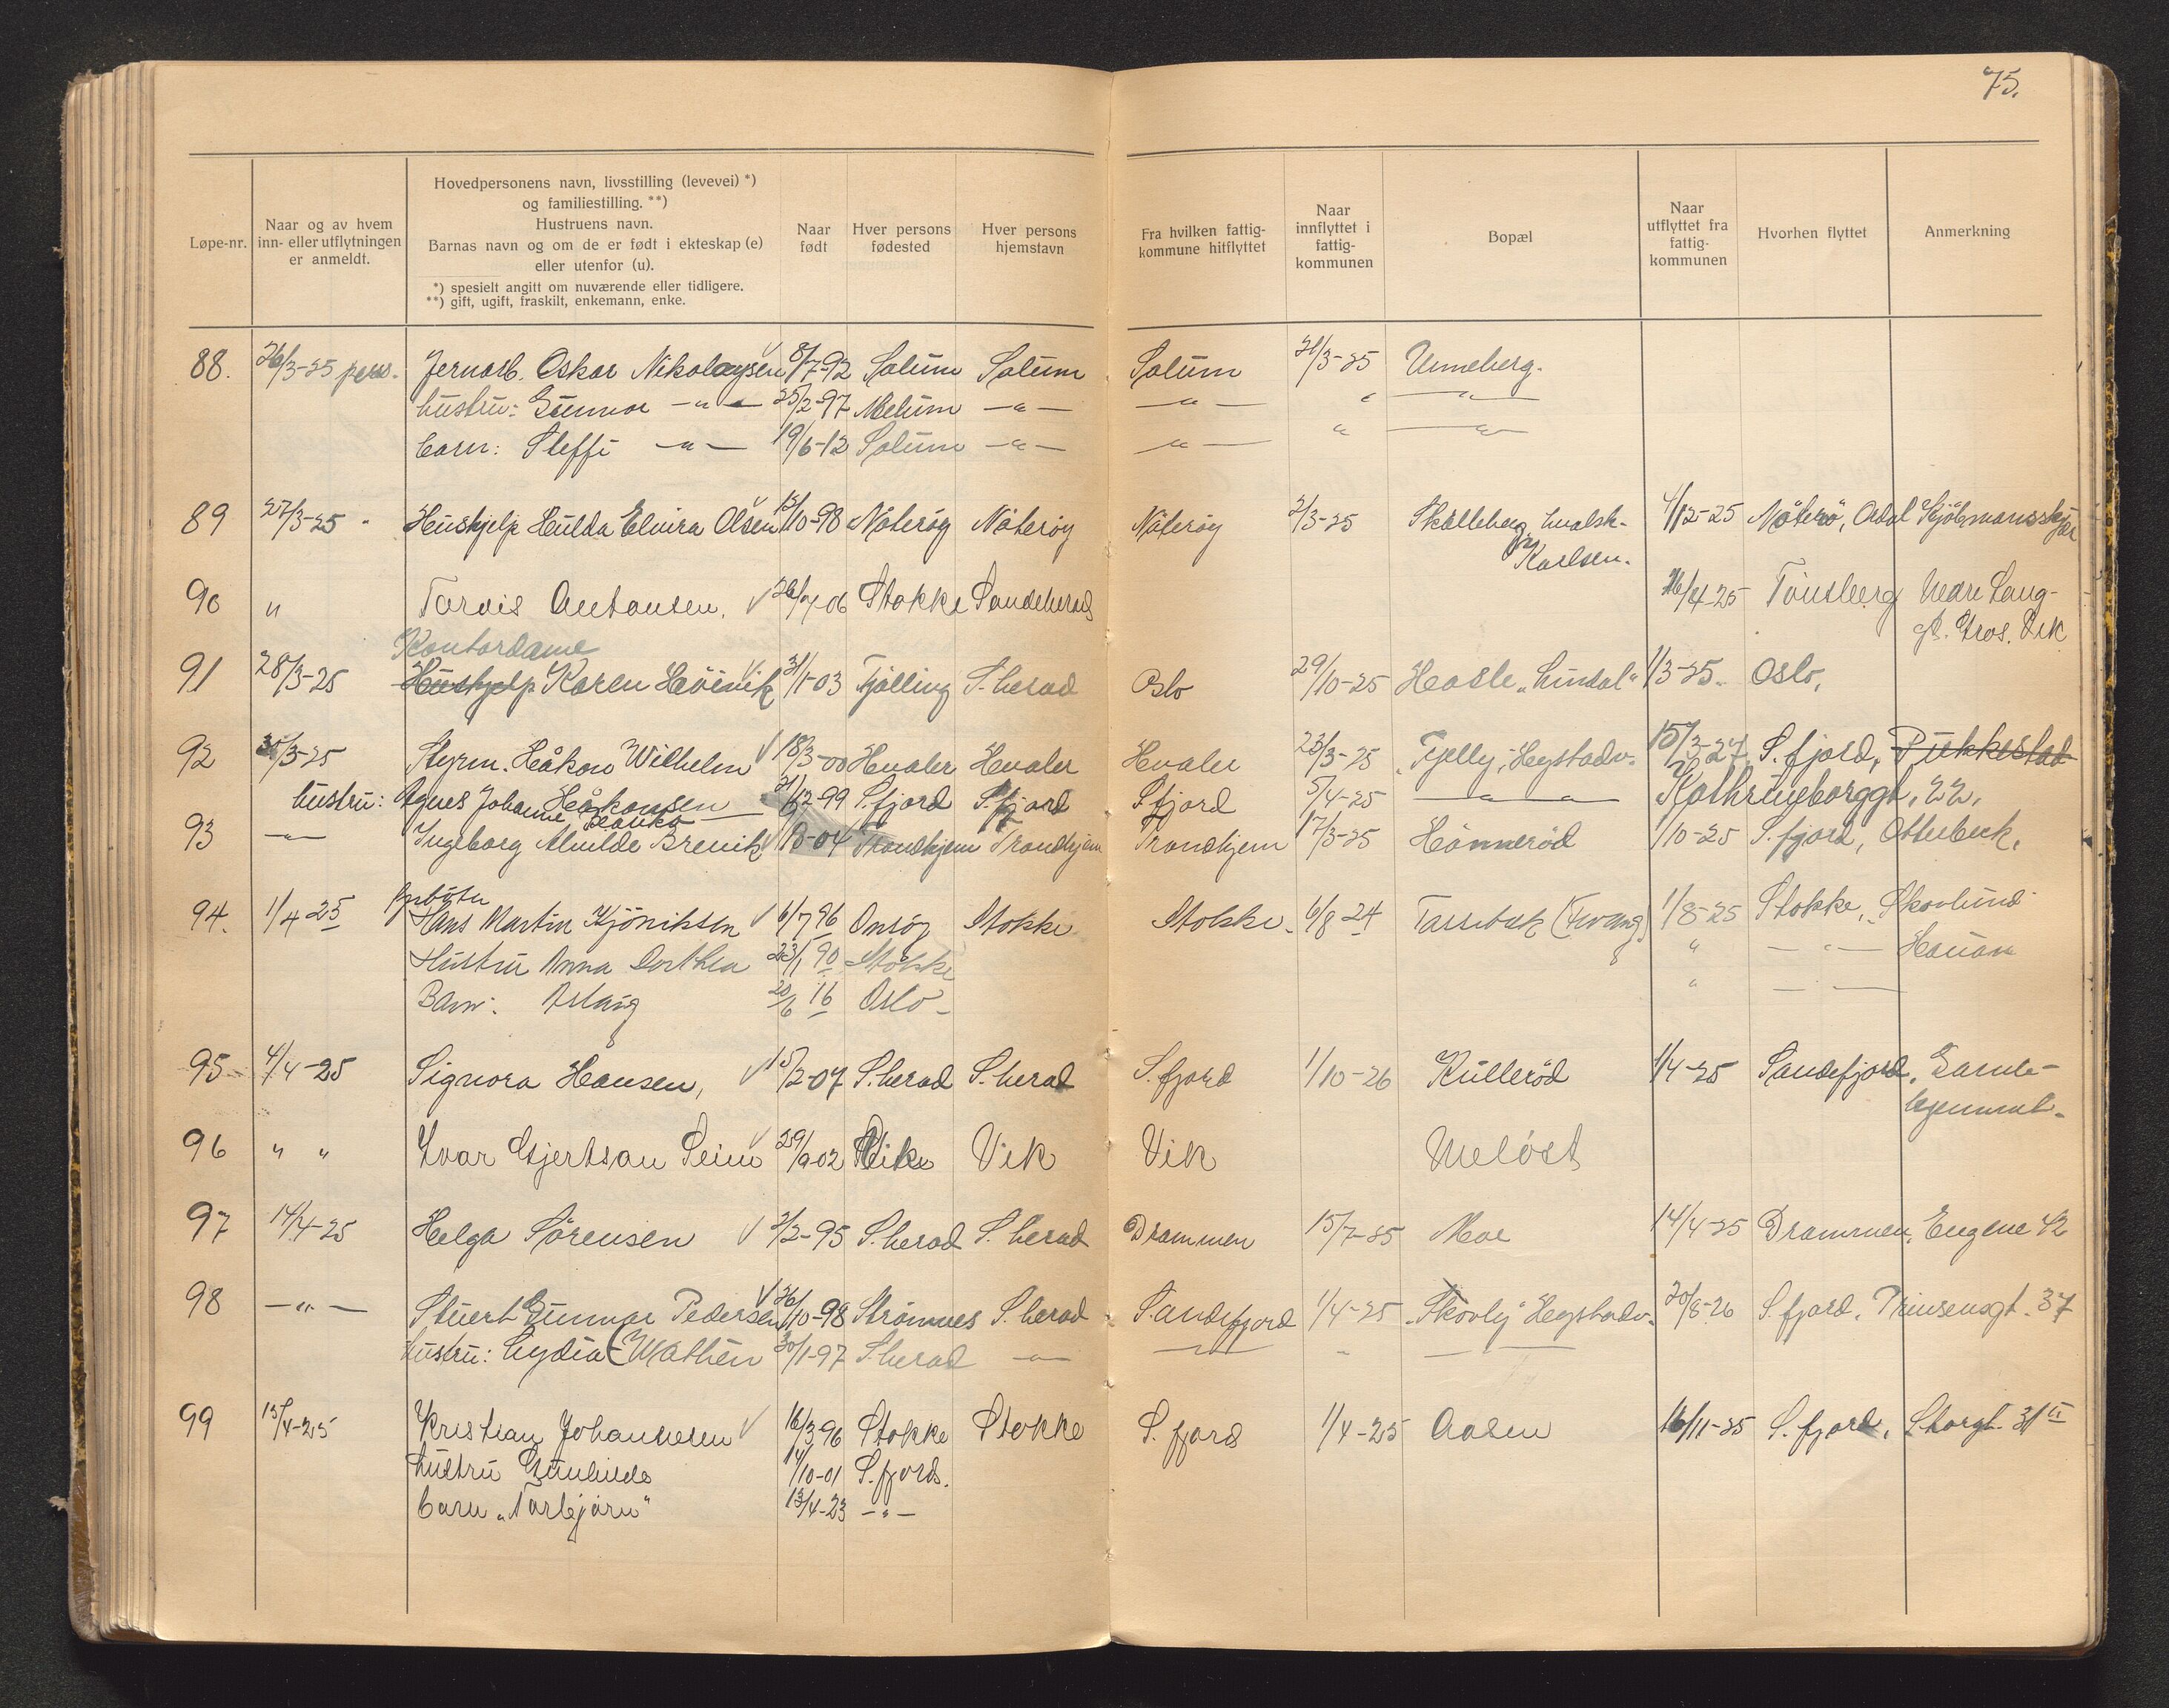 75.
Løpe-nr.
Naar og av hvem
inn- eller utflytningen
er anmeldt.
Hovedpersonens navn, livsstilling (levevei) *)
og familiestilling. **)
Hustruens navn.
Barnas navn og om de er født i ekteskap (e)
eller utenfor (u).
*) spesielt angitt om nuværende eller tidligere.
**) gift, ugift, fraskilt, enkemann, enke.
Naar
født
Hver persons
fødested
Hver persons
hjemstavn
Fra hvilken fattig-
kommune hitflyttet
Naar
innflyttet i
fattig-
kommunen
Bopæl
Naar
utflyttet fra
fattig-
kommunen
Hvorhen flyttet
Anmerkning
88. 26/3-25 pers. Jernarb. Oskar Nikolaysen 8/7-92 Solum Solum Solum 21/3-25 Unneberg.
hustru: Gunnor -"- 25/2-97 Melum -"- -"- " -"-
barn: Steffi -"- 19/6-12 Solum -"- -"- " -"-
89 27/3-25 " Hushjelp Hulda Elvira Olsen 12/10-98 Nøterøy Nøterøy Nøterøy 2/3-25 Skålleberg, hvalsk- 4/12-25 Nøterø, Ordal Kjøbmansskjær
Karlsen.
90 " Torvis Antonsen. 26/7-06 Stokke Sandeherad 26/4-25 Tønsberg Nedre Lang-
gt. Tros. Vik
Kontordame
91 28/3-25 Hushjelp Karen Høienik 31/1-03 Tjølling S.herad Oslo 29/10-25 Hasle "Lindal" 1/3-25. Oslo,
92 30/3-25 Styrm. Håkon Wilhelm 18/3-00 Hvaler Hvaler Hvaler 23/3-25 "Fjelly", Hegstadv. 15/3-27. S.fjord, Pukkestad
Håkonsen
hustru: Agnes Johanne Blanka 21/12-99 S.fjord S.fjord S.fjord 5/4-25 -"- Kathrineborggt. 22.
93 -"- Ingeborg Alvilde Brenik 18-04 Trondhjem Trondhjem Trondhjem 17/3-25 Hønnerød 1/10-25 S.fjord, Otterbeck.
94. 1/4 25 Hans Martin Kjøniksen 6/7 96 Onsøy Stokke Stokke. 6/8 24 Tassebæk (Fevang) 1/8-25 Stokke, "Skovlund"
Hustru Anna Dorthea 23/1 90 Stokke " -"- Hauan
Barn: Aslaug 20/6 16 Oslo - " -
95 4/4-25 Signora Hansen, 15/2-07 S.herad S.herad S.fjord 1/10-26 Kullerød 1/4-25 Sandefjord. Gamle-
96 " " Ivar Gjertsan Seim 29/9-02 Vik Vik Meløst
97 14/4-25 Helga Sørensen 2/2-95 S.herad S.herad Drammen 15/7-25 Moe 14/4-25 Drammen, Engene 42
98 -"- Stuert Gunnar Pedersen 26/10-98 Strømnes S.herad Sandefjord 1/4-25 "Skovly" Hegstadv. 20/8-26 S.fjord. Prinsensgt. 37
hustru: Lydia (Mathea 30/1-97 S.herad -"- -"- " -"-
99 15/4-25 Kristian Johannesen 16/3 96 Stokke Stokke S.fjord 1/4-25 Aasen 16/11-25 S.fjord, Storgt. 31 II
hustru Gunhilda 14/10-01 S.fjord.
barn "Torbjørn" 13/4-23 -"-